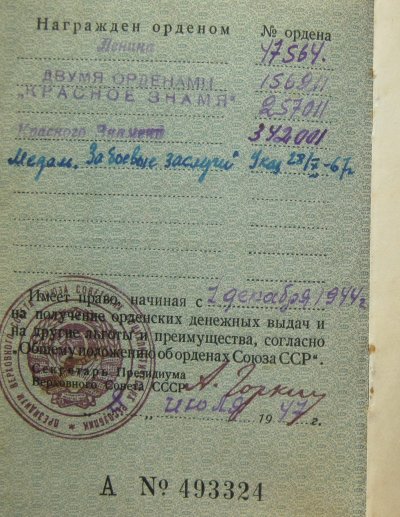 Награжден орденом № ордена
Ленина 47564.
ДВУМЯ ОРДЕНАМИ 156911
„КРАСНОЕ ЗНАМЯ" 257011
Красного Знамени 342001
Медал. „За боевые заслуги" Указ 28/X-67г
Имеет право, начиная с 1 декабря 1944 г
на получение орденских денежных выдач и
на другие льготы и преимущества, согласно
„Общему положению об орденах Союза ССР".
Секретарь Президиума
Верховного Совета СССР А. Горкин
" " июля 1947 г.
А № 493324